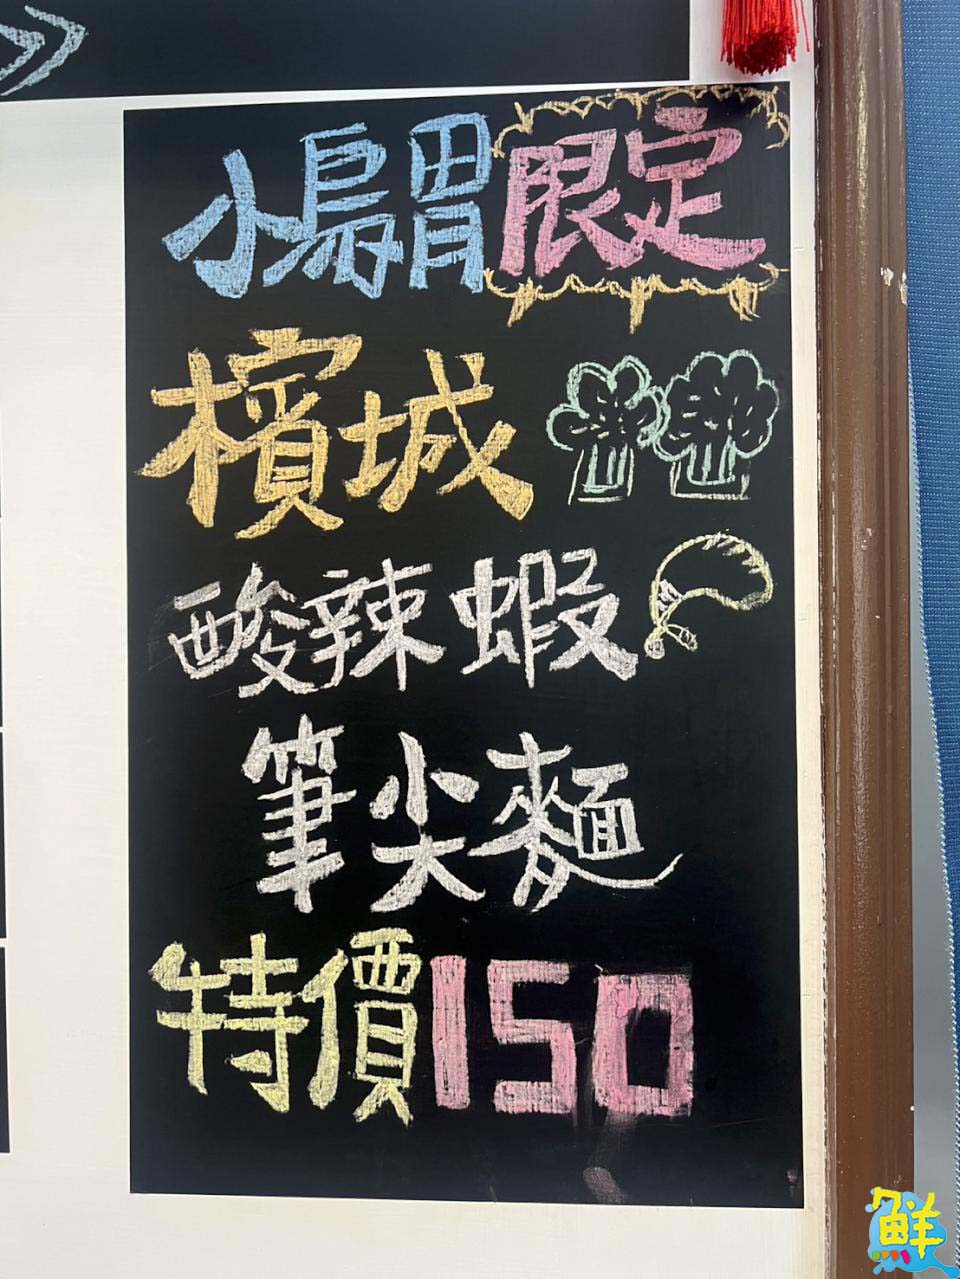 小鳥胃限定
檳城
酸辣蝦
筆尖麵
特價150
鮮